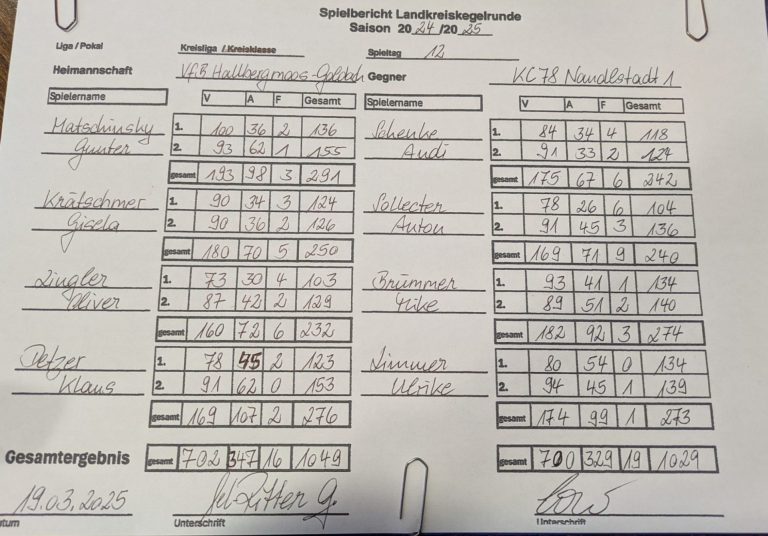 Spielbericht Landkreiskegelrunde
Saison 20 24 /20 25
Liga / Pokal Kreisliga / Kreisklasse Spieltag 12
Heimannschaft VfB Hallbergmoos-Goldach Gegner KC 78 Nandlstadt 1
Spielername V A F Gesamt Spielername V A F Gesamt
Matschinsky 1. 100 36 2 136 Schenke 1. 84 34 4 118
Gunter 2. 93 62 1 155 Audi 2. 91 33 2 124
gesamt 193 98 3 291 gesamt 175 67 6 242
Krätschmer 1. 90 34 3 124 Sollecter 1. 78 26 6 104
Gisela 2. 90 36 2 126 Anton 2. 91 45 3 136
gesamt 180 70 5 250 gesamt 169 71 9 240
Zingler 1. 73 30 4 103 Brümmer 1. 93 41 1 134
Oliver 2. 87 42 2 129 Mike 2. 89 51 2 140
gesamt 160 72 6 232 gesamt 182 92 3 274
Detzer 1. 78 45 2 123 Zimmer 1. 80 54 0 134
Klaus 2. 91 62 0 153 Ulrike 2. 94 45 1 139
gesamt 169 107 2 276 gesamt 174 99 1 273
Gesamtergebnis gesamt 702 347 16 1049 gesamt 700 329 19 1029
19.03.2025
atum Unterschrift Unterschrift